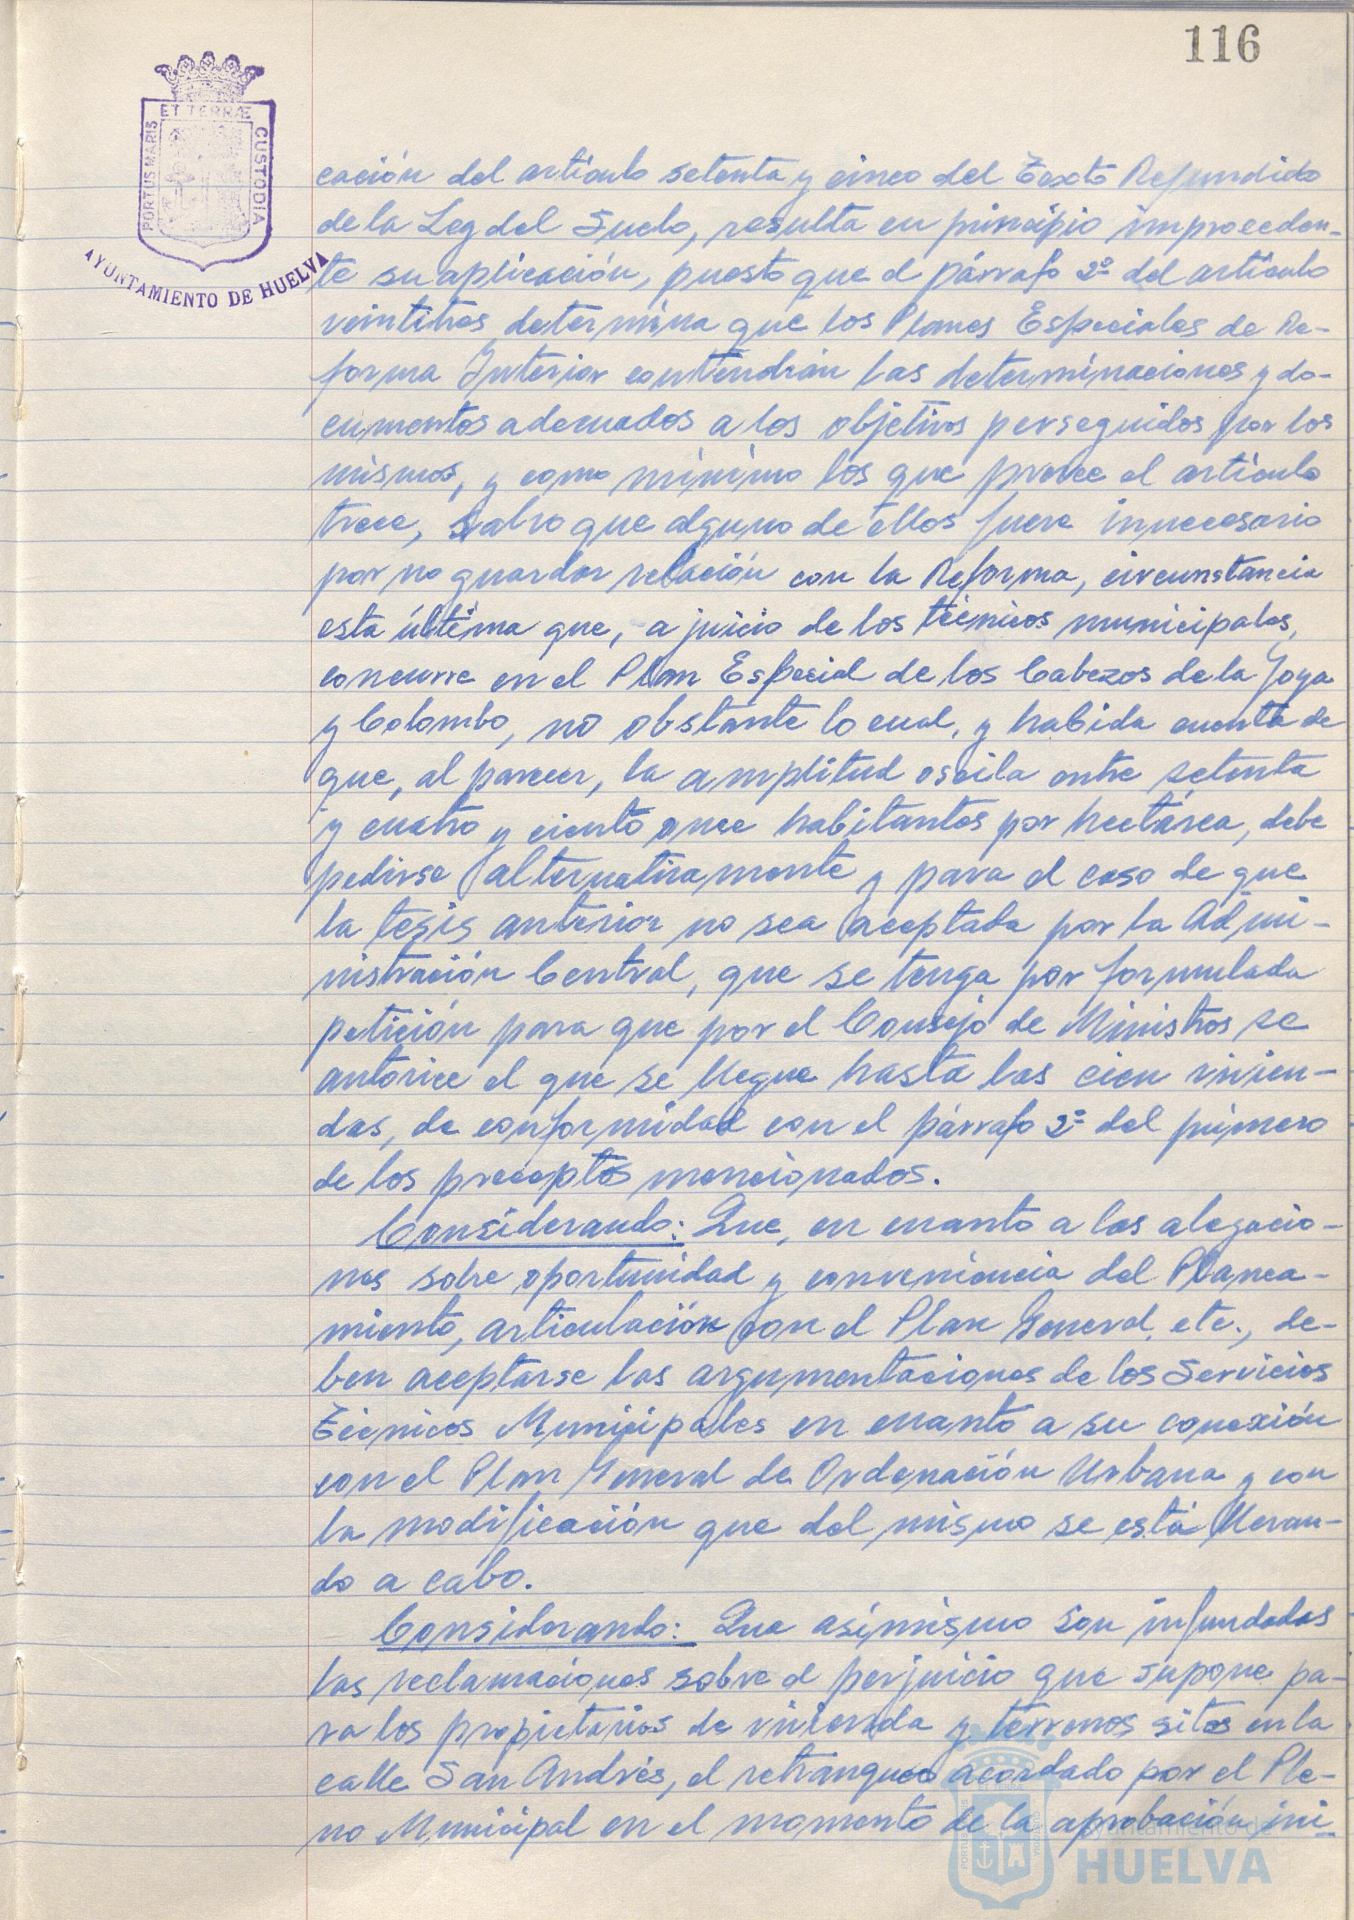 116
ET TERRÆ
PORTUS MARIS
CUSTODIA
AYUNTAMIENTO DE HUELVA
cación del artículo setenta y cinco del Texto Refundido
de la Ley del Suelo, resulta en principio improceden-
te su aplicación, puesto que el párrafo 2º del artículo
veintitres determina que los Planes Especiales de Re-
forma Interior contendrán las determinaciones y do-
cumentos adecuados a los objetivos perseguidos por los
mismos, y como mínimo los que prevee el artículo
trece, salvo que alguno de ellos fuere innecesario
por no guardar relación con la Reforma, circunstancia
esta última que, a juicio de los técnicos municipales,
concurre en el Plan Especial de los Cabezos de la Joya
y Colombo, no obstante lo cual, y habida cuenta de
que, al parecer, la amplitud oscila entre setenta
y cuatro y ciento once habitantes por hectárea, debe
pedirse alternativamente y para el caso de que
la tesis anterior no sea aceptada por la Admi-
nistración Central, que se tenga por formulada
petición para que por el Consejo de Ministros se
autorice el que se llegue hasta las cien vivien-
das, de conformidad con el párrafo 2º del primero
de los preceptos mencionados.
Considerando: Que, en cuanto a las alegacio-
nes sobre oportunidad y conveniencia del Planea-
miento, articulación con el Plan General, etc., de-
ben aceptarse las argumentaciones de los Servicios
Técnicos Municipales en cuanto a su conexión
con el Plan General de Ordenación Urbana y con
la modificación que del mismo se está llevan-
do a cabo.
Considerando: Que asimismo son infundadas
las reclamaciones sobre el perjuicio que supone pa-
ra los propietarios de vivienda y terrenos sitos en la
calle San Andrés, el retranqueo acordado por el Ple-
no Municipal en el momento de la aprobación ini-
Ayuntamiento de
HUELVA